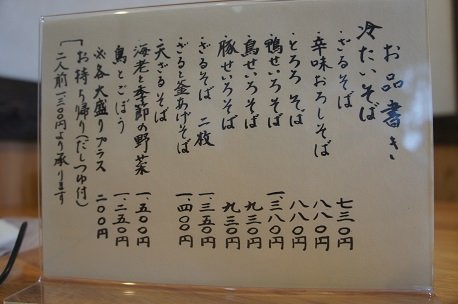 お品書き
冷たいそば
・ざるそば 七三〇円
・辛味おろしそば 八八〇円
・とろろそば 八八〇円
・鴨せいろそば 一、三八〇円
・鳥せいろそば 九三〇円
・豚せいろそば 九三〇円
・ざるそば 二枚 一、三五〇円
・ざると釜あげそば 一、四〇〇円
・天ざるそば
海老と季節の野菜 一、五〇〇円
鳥とごぼう 一、二五〇円
※各大盛りプラス 二〇〇円
「お持ち帰り(だしつゆ付)
二人前一三〇〇円より承ります」